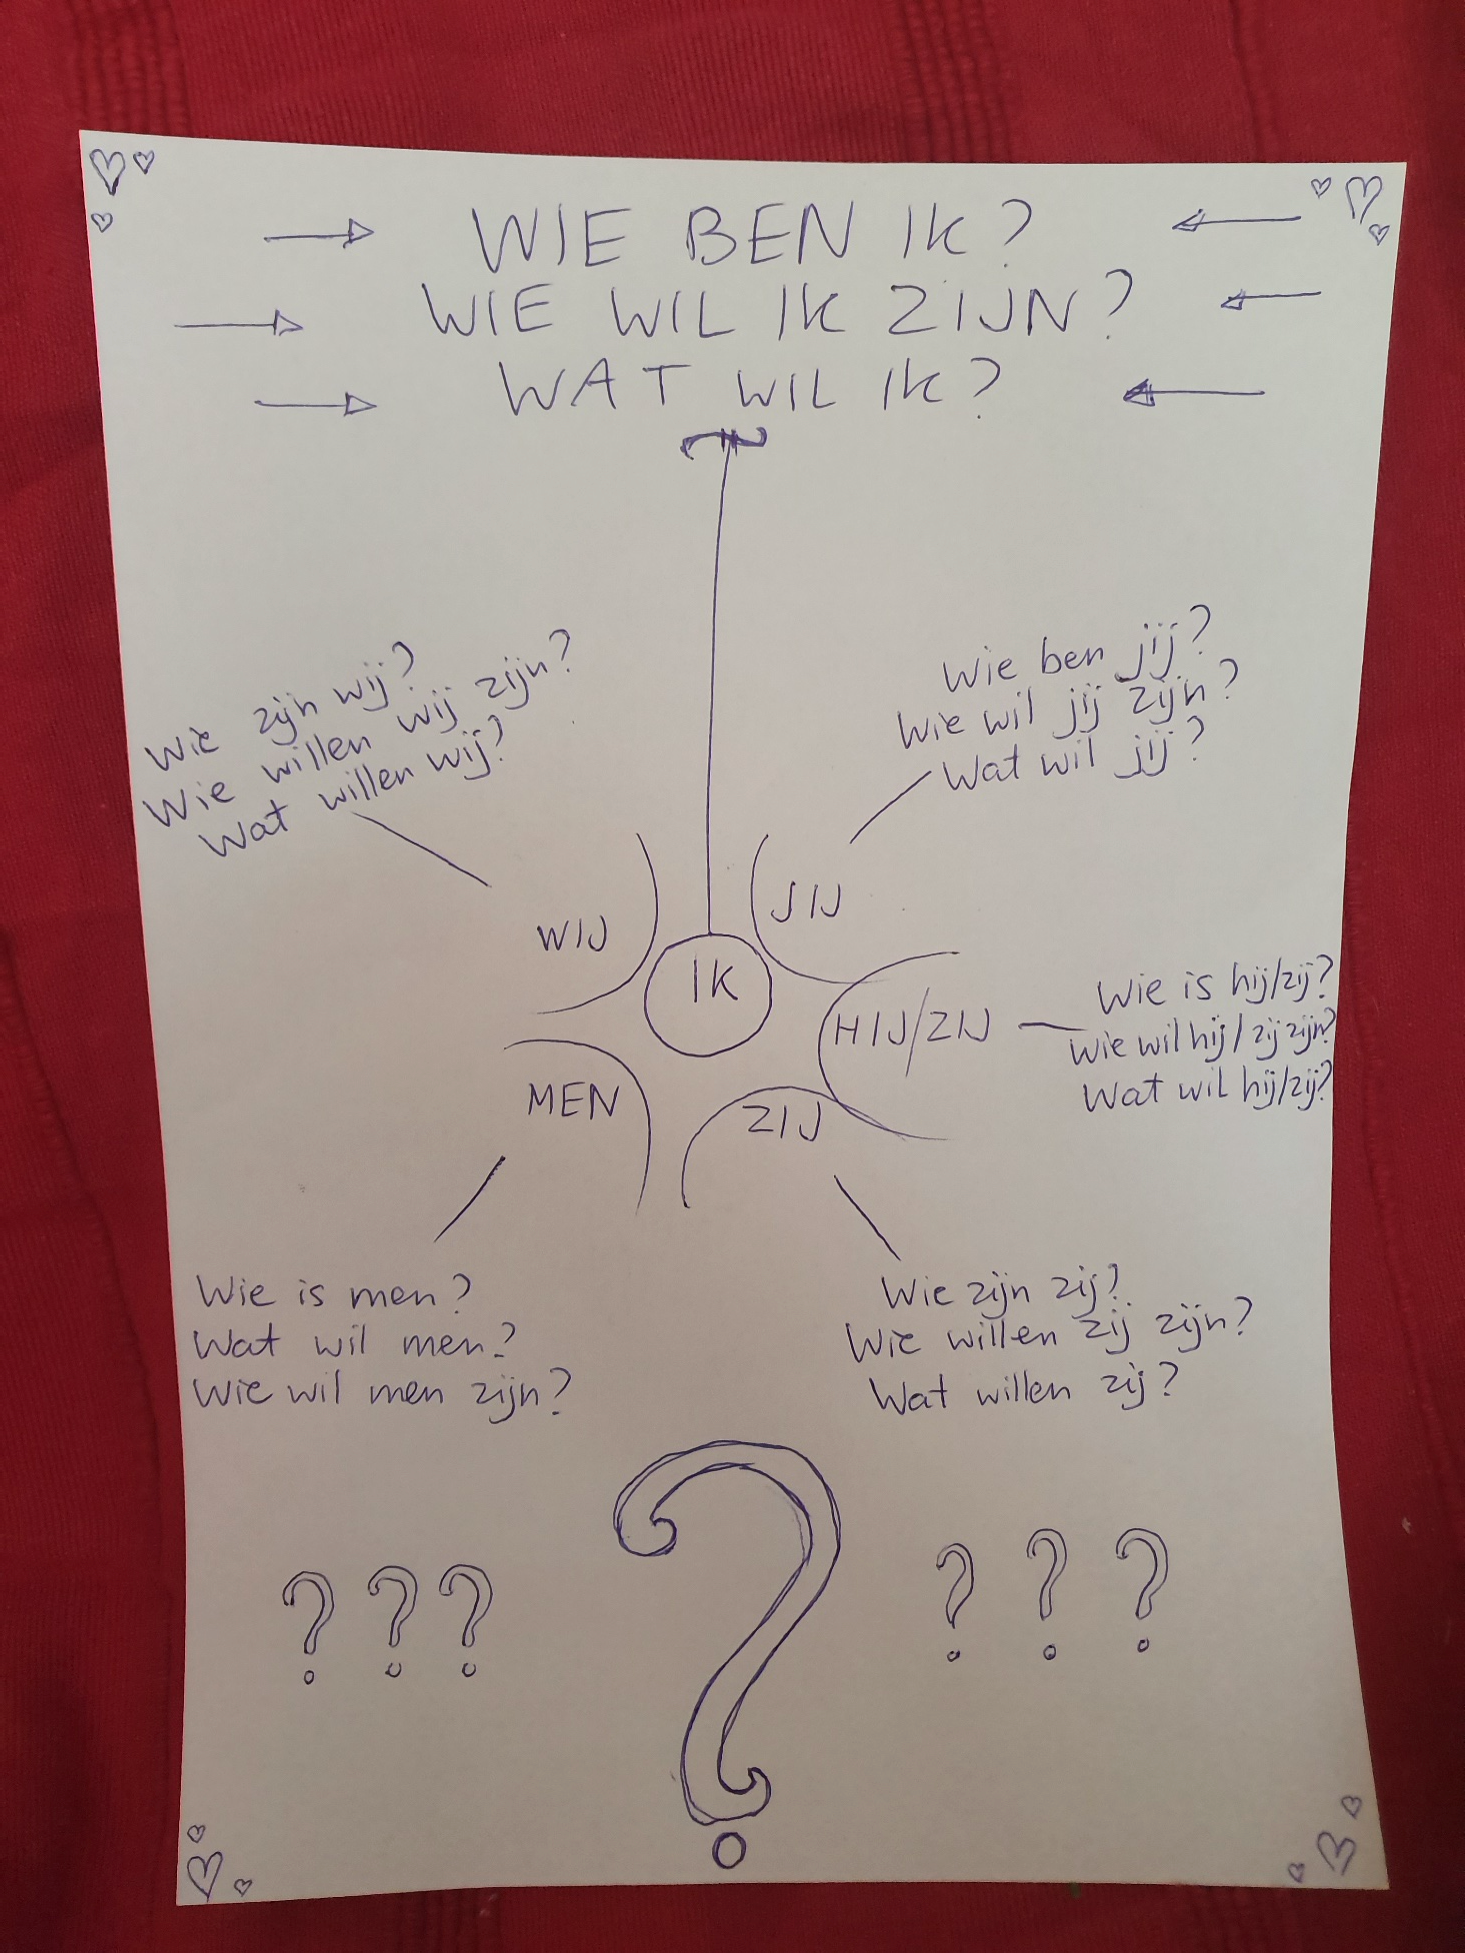 WIE BEN IK?
WIE WIL IK ZIJN?
WAT WIL IK?
Wie zijn wij?
Wie willen wij zijn?
Wat willen wij?
Wie ben jij?
Wie wil jij zijn?
Wat wil jij?
WIJ
JIJ
IK
HIJ/ZIJ
Wie is hij/zij?
Wie wil hij/zij zijn?
Wat wil hij/zij?
MEN
ZIJ
Wie is men?
Wat wil men?
Wie wil men zijn?
Wie zijn zij?
Wie willen zij zijn?
Wat willen zij?
? ? ? ? ? ? ?